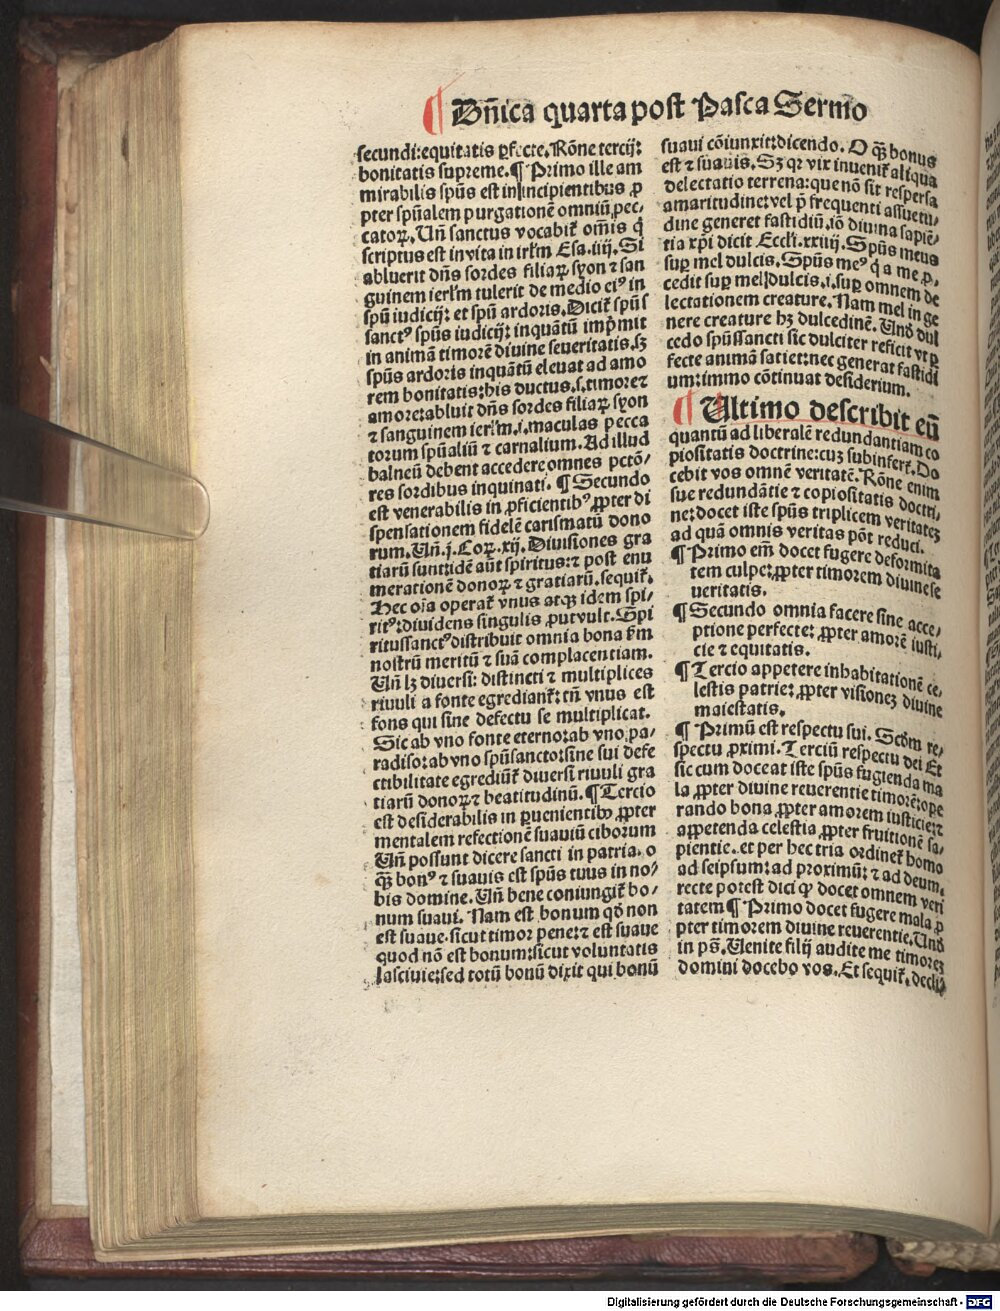 ¶ Dn̄ica quarta post Pasca Sermo
secundi: equitatis ꝑfecte. Rōne tercij:
bonitatis supreme. ¶ Primo ille am
mirabilis spūs est in incipientibus ꝓ
pter spūalem purgationē omniū pec⸗
catoꝝ. Un̄ sanctus vocabit᷑ om̄is q̇
scriptus est in vita in irl'm Esa. iiij. Si
abluerit dn̄s sordes filiaꝝ syon ⁊ san
guinem ierl'm tulerit de medio eiꝰ in
spū iudicij: et spū ardoris. Dicit᷑ spūs
sanctꝰ spūs iudicij: inquātū imp̄mit
in animā timorē diuine seueritatis. sꝫ
spūs ardoris inquātū eleuat ad amo
rem bonitatis: his ductus .s. timore ⁊
amore: abluit dn̄s sordes filiaꝝ syon
⁊ sanguinem ierl'm .i. maculas pecca
torum spūaliū ⁊ carnalium. Ad illud
balneū debent accedere omnes pctō⸗
res sordibus inquinati. ¶ Secundo
est venerabilis in ꝓficientibꝰ ꝓpter di
spensationem fidelē carismatū dono
rum. Un̄ .j. Coꝝ. xij. Diuisiones gra
tiarū sunt: idē aūt spiritus: ⁊ post enu
merationē donoꝝ ⁊ gratiarū. sequit᷑.
Hec oīa operat᷑ vnus atqꝫ idem spi⸗
ritꝰ: diuidens singulis ꝓut vult. Spi
ritussanctꝰ distribuit omnia bona ẜm
nostrū meritū ⁊ suā complacentiam.
Un̄ lꝫ diuersi: distincti ⁊ multiplices
riuuli a fonte egrediant᷑: tn̄ vnus est
fons qui sine defectu se multiplicat.
Sic ab vno fonte eterno: ab vno pa⸗
radiso: ab vno spūsancto: sine sui defe
ctibilitate egrediūt᷑ diuersi riuuli gra
tiarū donoꝝ ⁊ beatitudinū. ¶ Tercio
est desiderabilis in ꝑuenientibꝰ ꝓpter
mentalem refectionē suauiū ciborum
Un̄ possunt dicere sancti in patria. o
qꝫ̄ bonꝰ ⁊ suauis est spūs tuus in no⸗
bis domine. Un̄ bene coniungit᷑ bo⸗
num suaui. Nam est bonum qd̄ non
est suaue. sicut timor pene: ⁊ est suaue
quod nō est bonum: sicut voluntatis
lasciuie: sed totū bonū dixit qui bonū
suaui cōiunxit: dicendo. O qꝫ̄ bonus
est ⁊ suauis. Sꝫ qꝛ vix inuenit᷑ aliqua
delectatio terrena: que nō sit respersa
amaritudine: vel p̄ frequenti assuetu⸗
dine generet fastidiū. iō diuina sapiē⸗
tia xp̄i dicit Eccl'i. xxiiij. Spūs meus
suꝑ mel dulcis. Spūs meꝰ q̇ a me ꝓ⸗
cedit suꝑ mel dulcis .i. suꝑ omnem de
lectationem creature. Nam mel in ge
nere creature hꝫ dulcedinē. Und̄ dul
cedo spūssancti sic dulciter reficit vt ꝑ
fecte animā satiet: nec generat fastidi
um: immo cōtinuat desiderium.
¶ Ultimo describit eū
quantū ad liberalē redundantiam co
piositatis doctrine: cuꝫ subinfert᷑. Do
cebit vos omnē veritatē. Rōne enim
sue redundātie ⁊ copiositatis doctri⸗
ne: docet iste spūs triplicem veritateꝫ
ad quā omnis veritas pōt reduci.
¶ Primo em̄ docet fugere deformita
tem culpe: ꝓpter timorem diuine se
ueritatis.
¶ Secundo omnia facere sine acce⸗
ptione perfecte: ꝓpter amorē iusti⸗
cie ⁊ equitatis.
¶ Tercio appetere inhabitationē ce⸗
lestis patrie: ꝓpter visioneꝫ diuine
maiestatis.
¶ Primū est respectu sui. Scd̄m re⸗
spectu ꝓximi. Terciū respectu dei Et
sic cum doceat iste spūs fugienda ma
la ꝓpter diuine reuerentie timorē: ope
rando bona ꝓpter amorem iusticie: ⁊
appetenda celestia ꝓpter fruitionē sa⸗
pientie. et per hec tria ordinet᷑ homo
ad seipsum: ad proximū: ⁊ ad deum.
recte potest dici ꝙ docet omnem veri
tatem ¶ Primo docet fugere mala ꝓ
pter timorem diuine reuerentie. Und̄
in ps̄. Uenite filij audite me timoreꝫ
domini docebo vos. Et sequit᷑. decli⸗
Digitalisierung gefördert durch die Deutsche Forschungsgemeinschaft - DFG